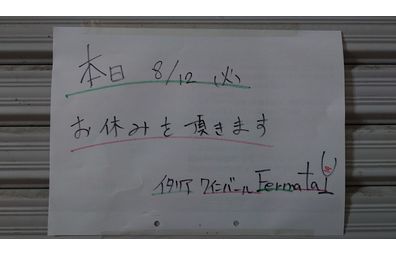 本日 8/12 (火)
お休みを頂きます
イタリア ワインバール Fermata